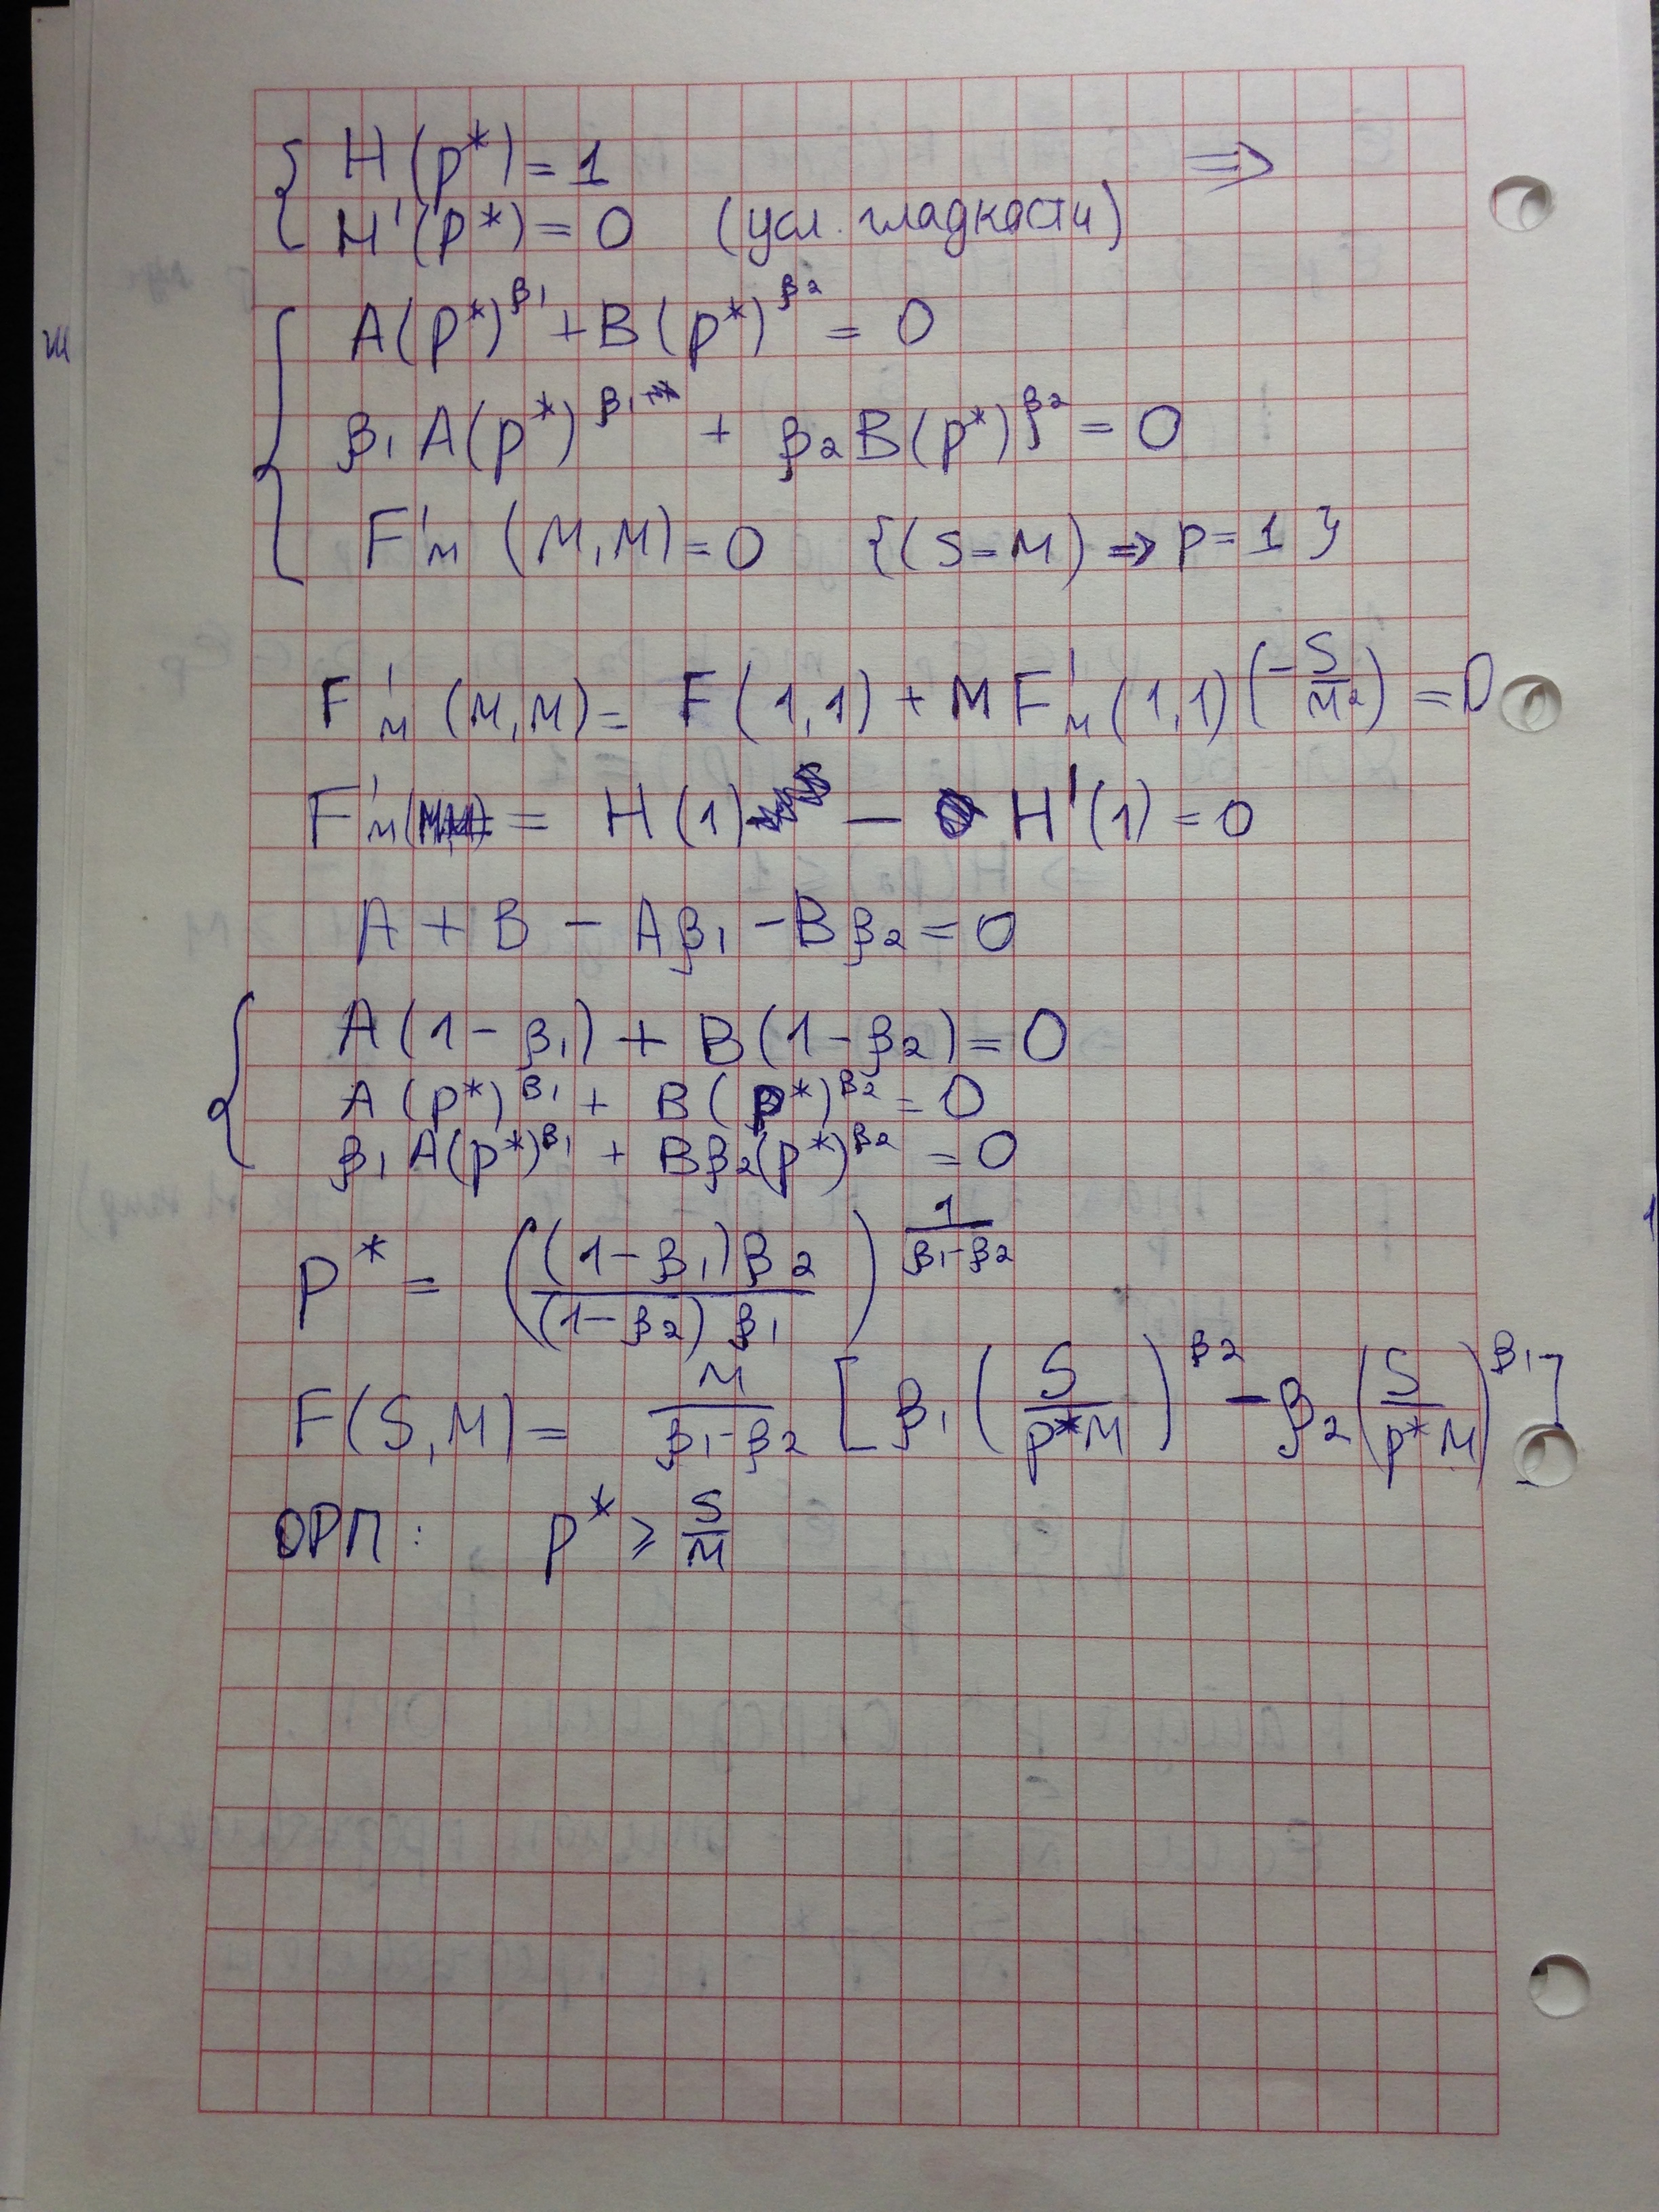 { H(p*) = 1 ⇒
H'(p*) = 0 (усл. гладкости)
{ A(p*)^β₁ + B(p*)^β₂ = 0
β₁A(p*)^β₁ + β₂B(p*)^β₂ = 0
F'м (M,M) = 0 {(S=M) ⇒ p=1}
F'м (M,M) = F(1,1) + M F'м (1,1) (-S/M²) = 0
F'м = H(1) - H'(1) = 0
A + B - Aβ₁ - Bβ₂ = 0
{ A(1-β₁) + B(1-β₂) = 0
A(p*)^β₁ + B(p*)^β₂ = 0
β₁A(p*)^β₁ + Bβ₂(p*)^β₂ = 0
p* = ((1-β₁)β₂ / (1-β₂)β₁)^(1/(β₁-β₂))
F(S,M) = M/(β₁-β₂) [β₁(S/(p*M))^β₂ - β₂(S/(p*M))^β₁]
ОРП: p* ≥ S/M